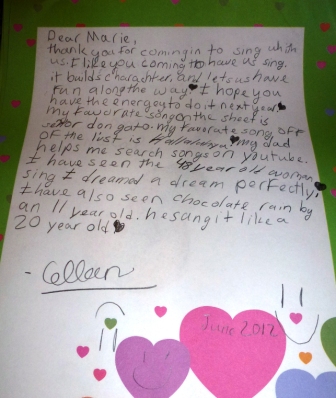 Dear Marie,
thank you for comingin to sing with
us. I like you coming to have us sing.
it builds charachter, and lets us have
fun along the way I hope you
have the energey to do it next year
my favorate song on the sheet is
don gato. my faverate song off
of the list is Hallaluya my dad
helps me search songs on youtube.
I have seen the 48 year old woman
sing I dreamed a dream perfectly,
I have also seen chocolate rain by
an 11 year old. he sang it like a
20 year old
- Colleen
June 2012